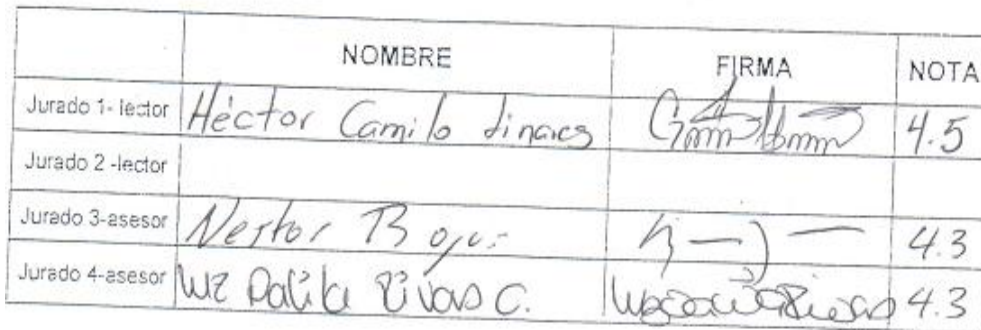 NOMBRE FIRMA NOTA
Jurado 1- lector Héctor Camilo Linares 4.5
Jurado 2 -lector
Jurado 3-asesor Nestor 4.3
Jurado 4-asesor Luz Dalila Rivas C. 4.3